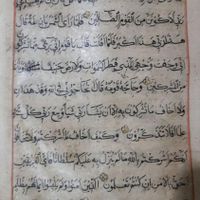 رَبِّي لَأَكُونَنَّ مِنَ الْقَوْمِ الضَّالِّينَ فَلَمَّا رَأَى الشَّمْسَ بَازِغَةً قَالَ
هَذَا رَبِّي هَذَا أَكْبَرُ فَلَمَّا أَفَلَتْ قَالَ يَا قَوْمِ إِنِّي بَرِيءٌ مِمَّا تُشْرِكُونَ
إِنِّي وَجَّهْتُ وَجْهِيَ لِلَّذِي فَطَرَ السَّمَوَاتِ وَالْأَرْضَ حَنِيفًا وَمَا أَنَا
مِنَ الْمُشْرِكِينَ وَحَاجَّهُ قَوْمُهُ قَالَ أَتُحَاجُّونِّي فِي اللَّهِ وَقَدْ هَدَانِ
وَلَا أَخَافُ مَا تُشْرِكُونَ بِهِ إِلَّا أَنْ يَشَاءَ رَبِّي شَيْئًا وَسِعَ رَبِّي كُلَّ شَيْءٍ
عِلْمًا أَفَلَا تَتَذَكَّرُونَ وَكَيْفَ أَخَافُ مَا أَشْرَكْتُمْ وَلَا تَخَافُونَ
أَنَّكُمْ أَشْرَكْتُمْ بِاللَّهِ مَا لَمْ يُنَزِّلْ بِهِ عَلَيْكُمْ سُلْطَانًا فَأَيُّ الْفَرِيقَيْنِ
أَحَقُّ بِالْأَمْنِ إِنْ كُنْتُمْ تَعْلَمُونَ الَّذِينَ آمَنُوا وَلَمْ يَلْبِسُوا إِيمَانَهُمْ بِظُلْمٍ